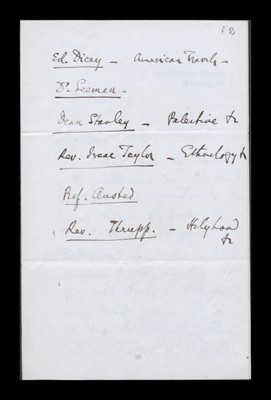 Ed. Dicey - American Travels -
Dr. Seeman -
Dean Stanley - Palestine &c
Rev. Isaac Taylor - Ethnology &c
Prof. Ansted
Rev. Thrupp. - Holyhood
&c